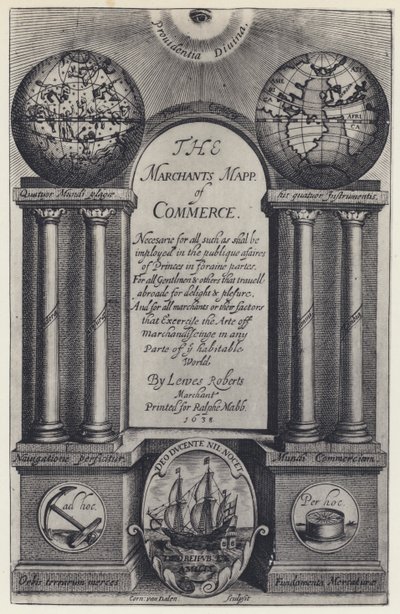 Providentia Divina.
AFRI
CA
Quatuor Mundi plagæ
his quatuor Instrumentis.
THE
MARCHANTS MAPP
of
COMMERCE.
Necesarie for all such as shal be
imployed in the publique afaires
of Princes in foraine partes.
For all Gentlmen & others that travell
abroade for delight & plesure,
And for all marchants or their factors
that Exercise the Arte off
marchandiseinge in any
Parte of yͤ habitable
World.
By Lewes Roberts
Marchant
Printed for Ralphe Mabb.
1638
Navigatione perficitur
Mundi Commercium
DEO DUCENTE NIL NOCET
ad hoc
Per hoc
Orbis terrarum merces
Fundamenta Mercaturæ
Corn. van Dalen
Sculpsit